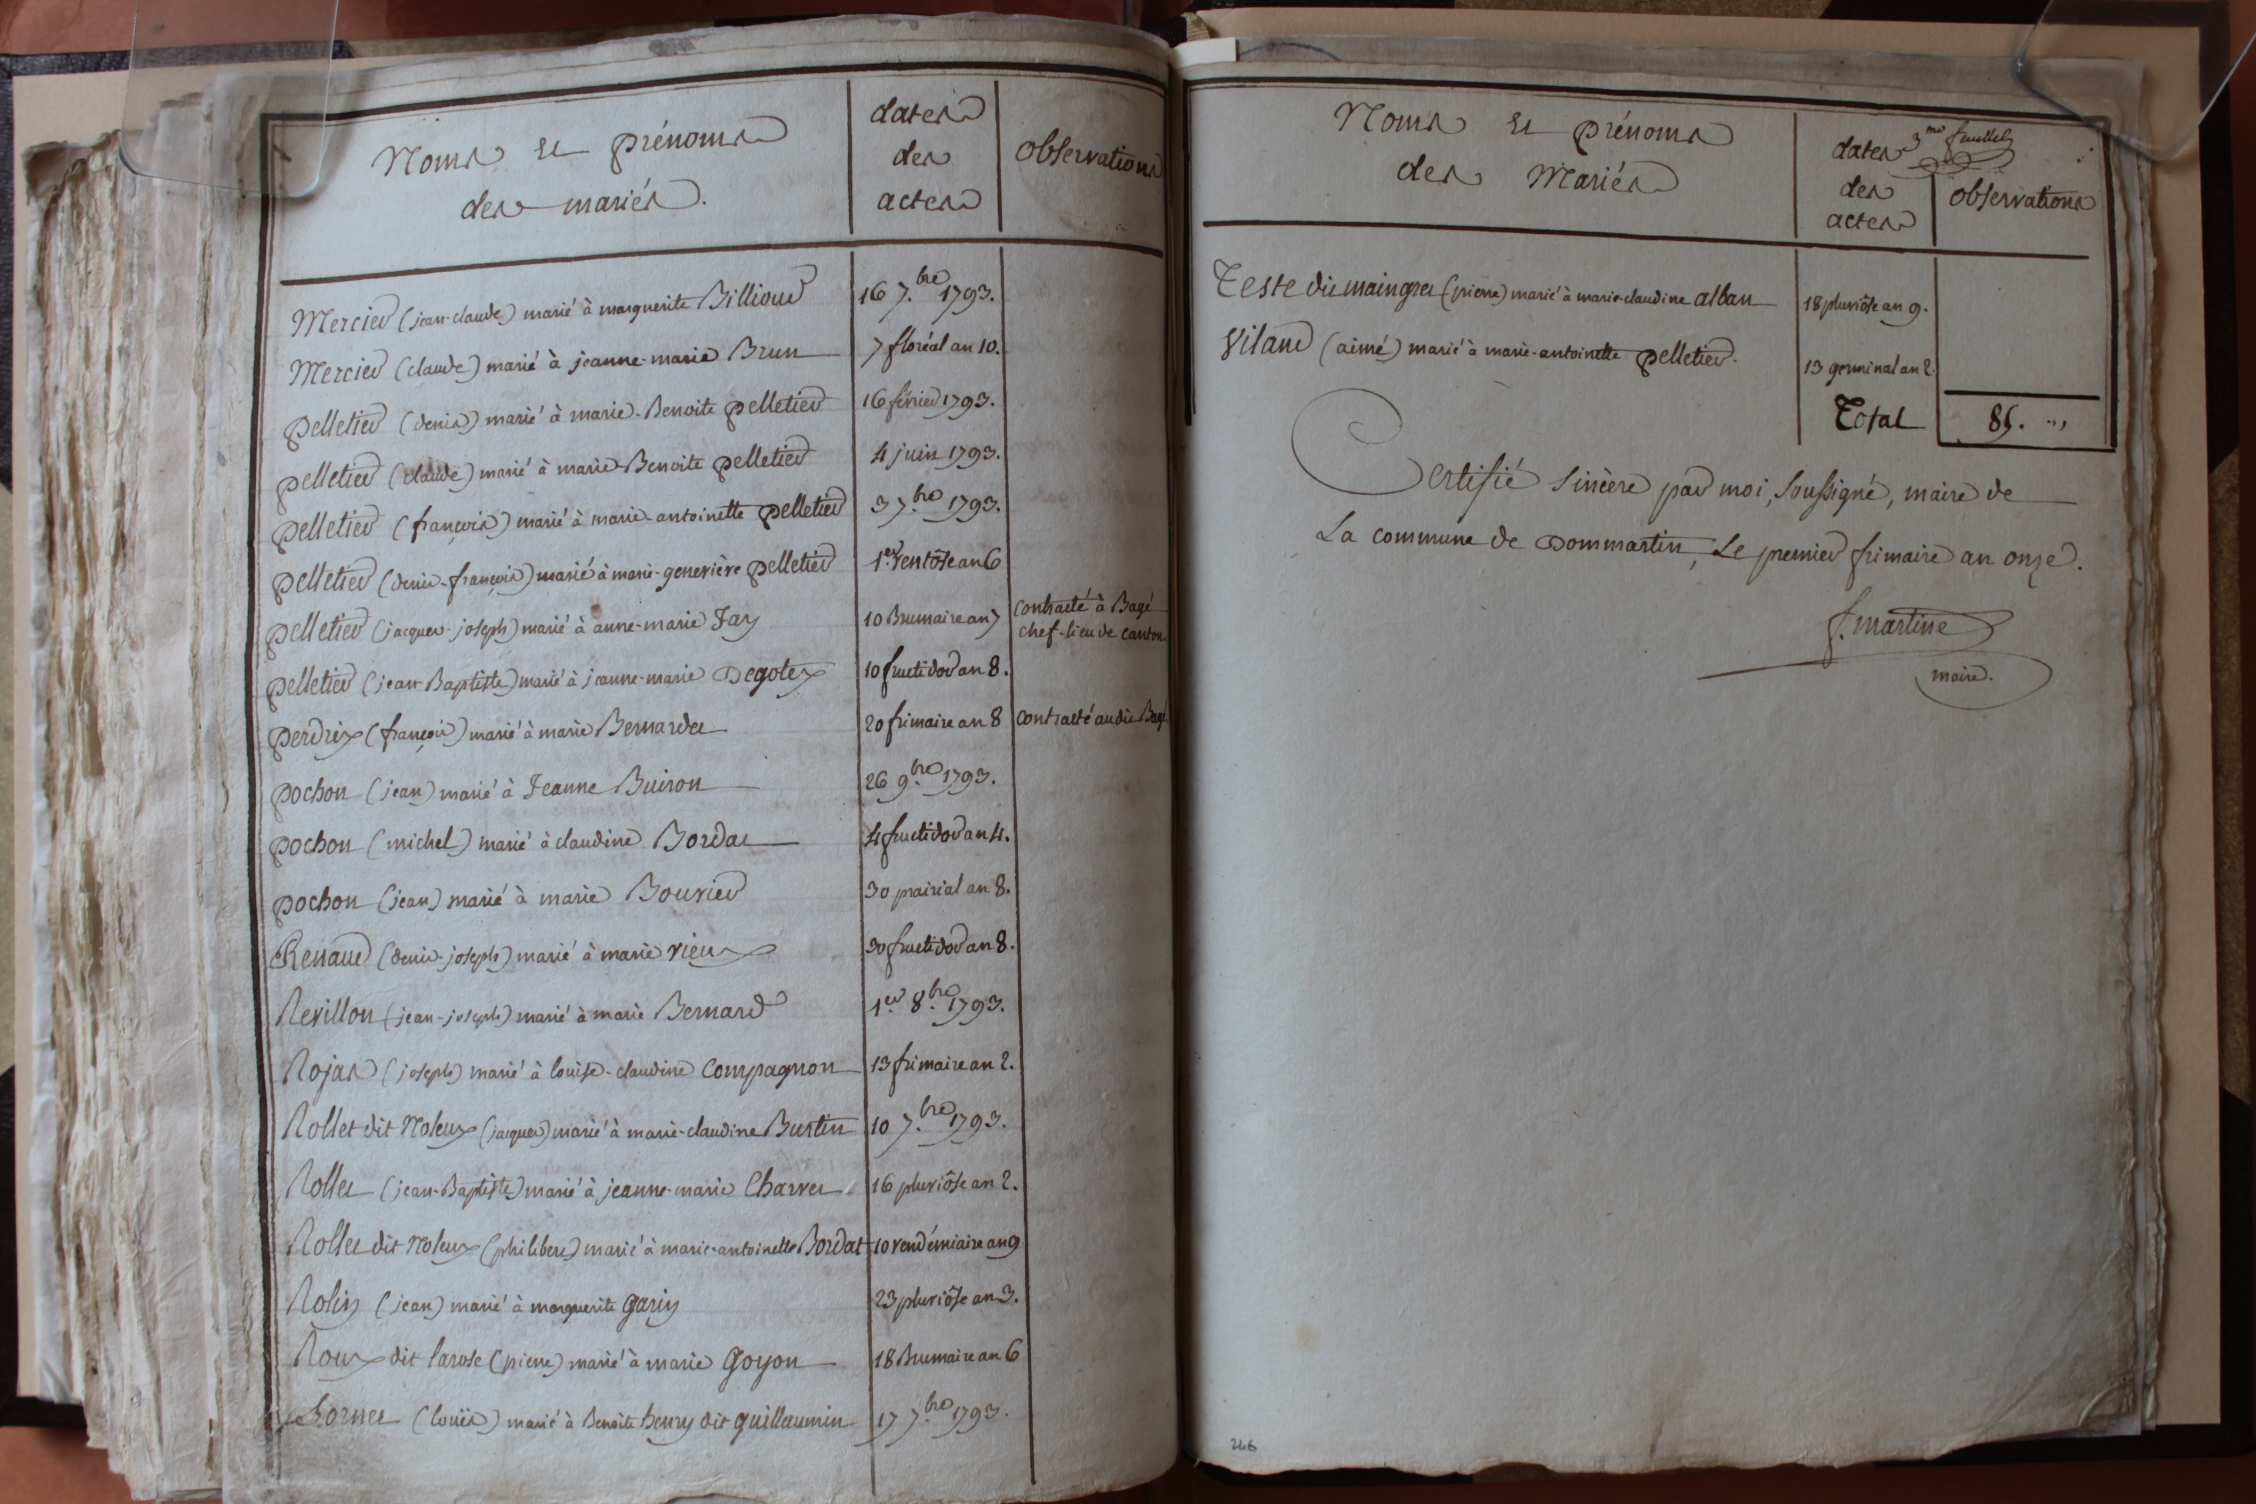 Noms et prénoms
des mariés.
dates
des
actes
observations
Mercier (jean-claude) marié à marguerite Billioud 16 7.bre 1793.
Mercier (claude) marié à jeanne-marie Brun 7 floréal an 10.
pelletier (denis) marié à marie-Benoite pelletier 16 février 1793.
pelletier (claude) marié à marie-Benoite pelletier 4 juin 1793.
pelletier (françois) marié à marie-antoinette pelletier 3 7.bre 1793.
pelletier (denis-françois) marié à marie-genevière pelletier 1.er ventôse an 6
pelletier (jacques-joseph) marié à anne-marie Fay 10 Brumaire an 7 contracté à Bagé
chef-lieu de canton
pelletier (jean-Baptiste) marié à jeanne-marie Degotex 10 fructidor an 8.
perdrix (françois) marié à marie Bernardet 20 frimaire an 8 contracté audit Bagé
pochon (jean) marié à Jeanne Buiron 26 9.bre 1793.
pochon (michel) marié à claudine Bordat 4 fructidor an 4.
pochon (jean) marié à marie Bouvier 30 prairial an 8.
Renaud (denis-joseph) marié à marie vieux 30 fructidor an 8.
Revillon (jean-joseph) marié à marie Bernard 1.er 8.bre 1793.
Rojas (joseph) marié à louise-claudine Compagnon 13 frimaire an 2.
Rollet dit Noleux (jacques) marié à marie-claudine Burtin 10 7.bre 1793.
Rollet (jean-Baptiste) marié à jeanne-marie Charvet 16 pluviôse an 2.
Rollet dit Noleux (philibert) marié à marie-antoinette Bordat 10 vendémiaire an 9
Rolin (jean) marié à marguerite Garin 23 pluviôse an 3.
Roux dit larose (pierre) marié à marie Goyon 18 Brumaire an 6
Sornet (louis) marié à Benoite henry dit guillaumin 17 7.bre 1793.
3.me feuillet
Noms et prénoms
des Mariés
dates
des
actes
observations
Teste dit maingret (pierre) marié à marie-claudine alban 18 pluviôse an 9.
Vilard (aimé) marié à marie-antoinette pelletier. 13 germinal an 2.
Total 85. "
Certifié sincère par moi, soussigné, maire de
La commune de Dommartin, Le premier frimaire an onze.
f. martine
maire.
246